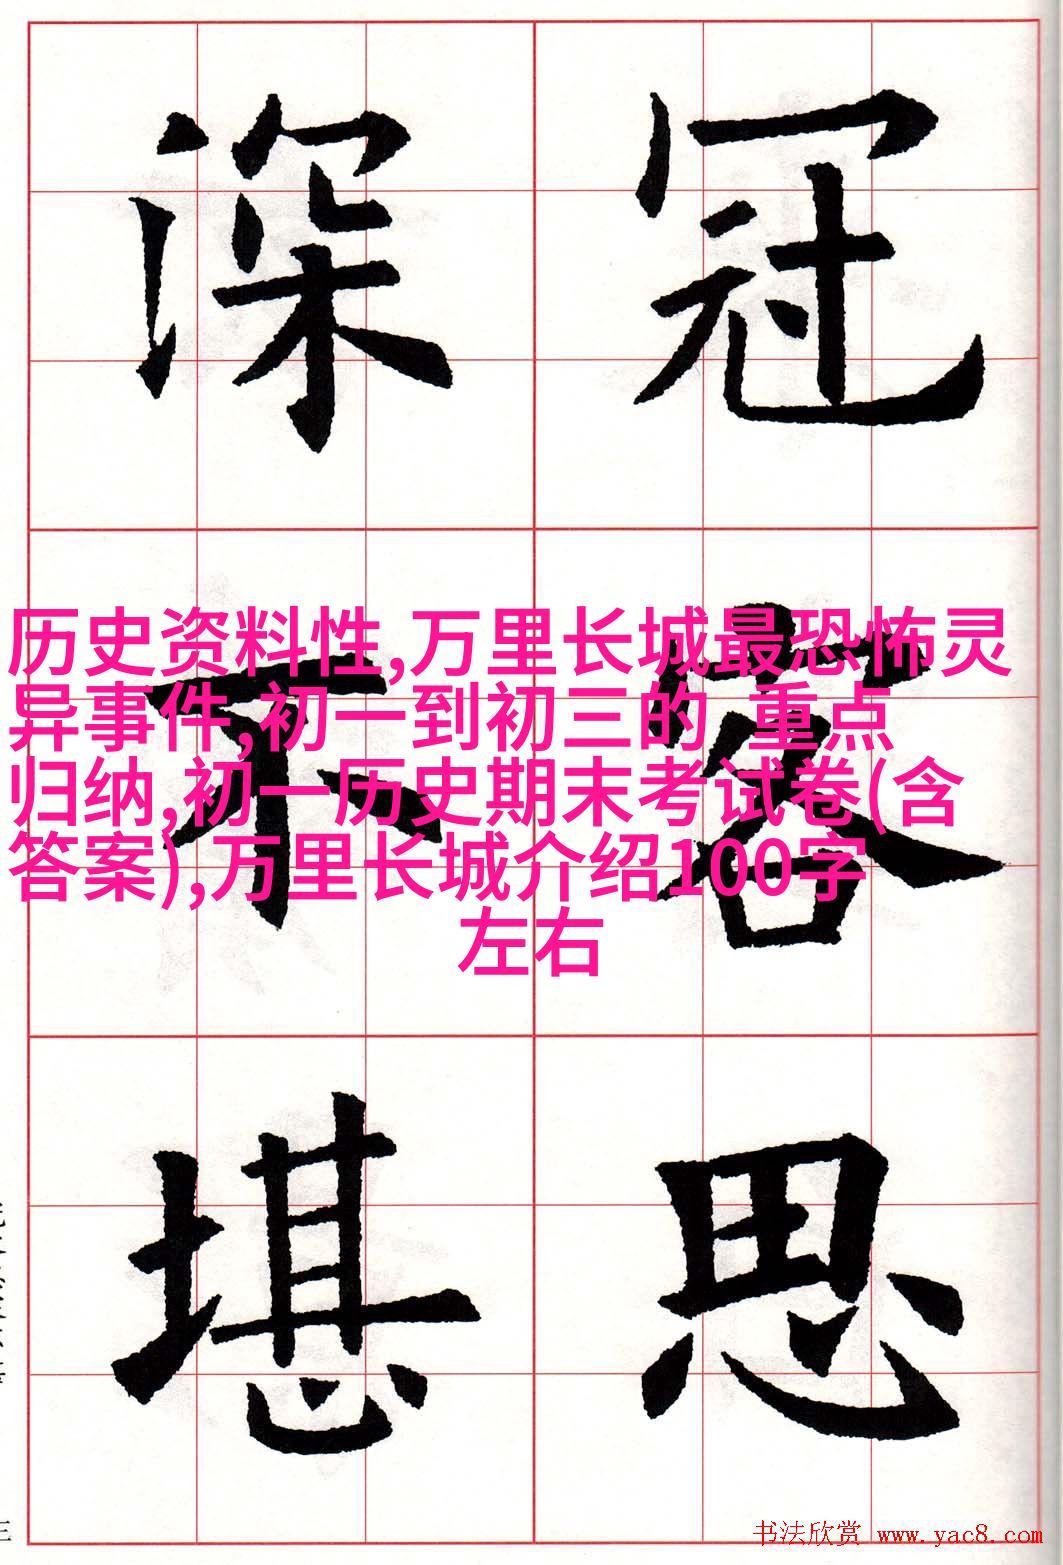 深 冠
历史资料性,万里长城最恐怖灵
异事件,初一到初三的 重点
归纳,初一历史期末考试卷(含
答案),万里长城介绍100字
左右
不 容
堪 思
书法欣赏 www.yac8.com
三